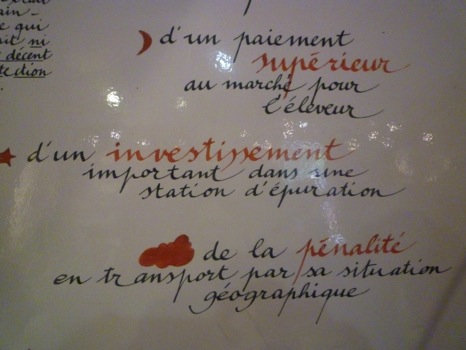 ain-
ce qui
ait ni
décent
ction
d'un paiement
supérieur
au marché pour
l'éleveur
d'un investissement
important dans une
station d'épuration
de la pénalité
en transport par sa situation
géographique